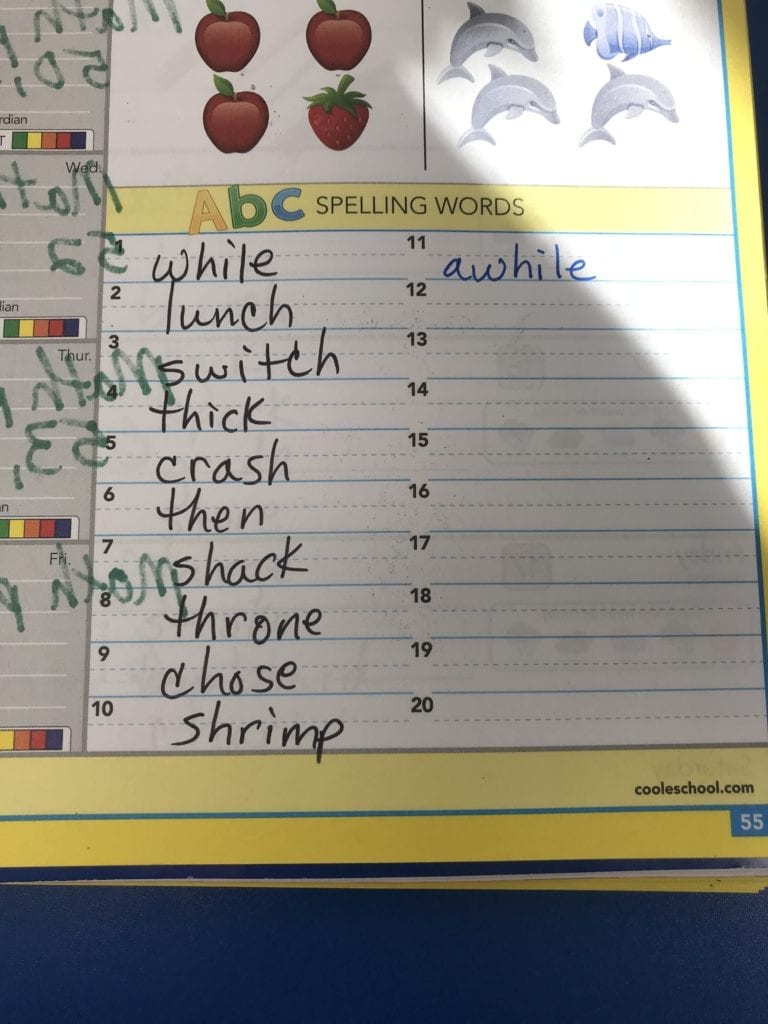 Math
50,
rdian
T
Wed.
Math
52
lian
Thur.
Math p
53,
n
Fri.
Math p
Abc SPELLING WORDS
1 while
2 lunch
3 switch
4 thick
5 crash
6 then
7 shack
8 throne
9 chose
10 shrimp
11 awhile
12
13
14
15
16
17
18
19
20
cooleschool.com
55